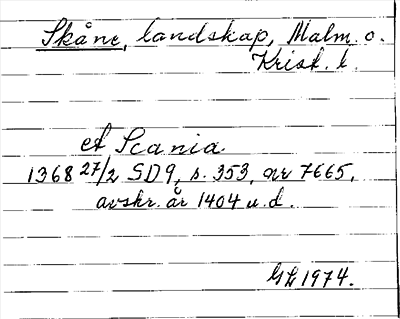 Skåne, landskap, Malm. o.
Krist. l.
et Scania
1368 27/2 SD9, s. 353, nr 7665,
avskr. år 1404 u.d.
GL 1974.